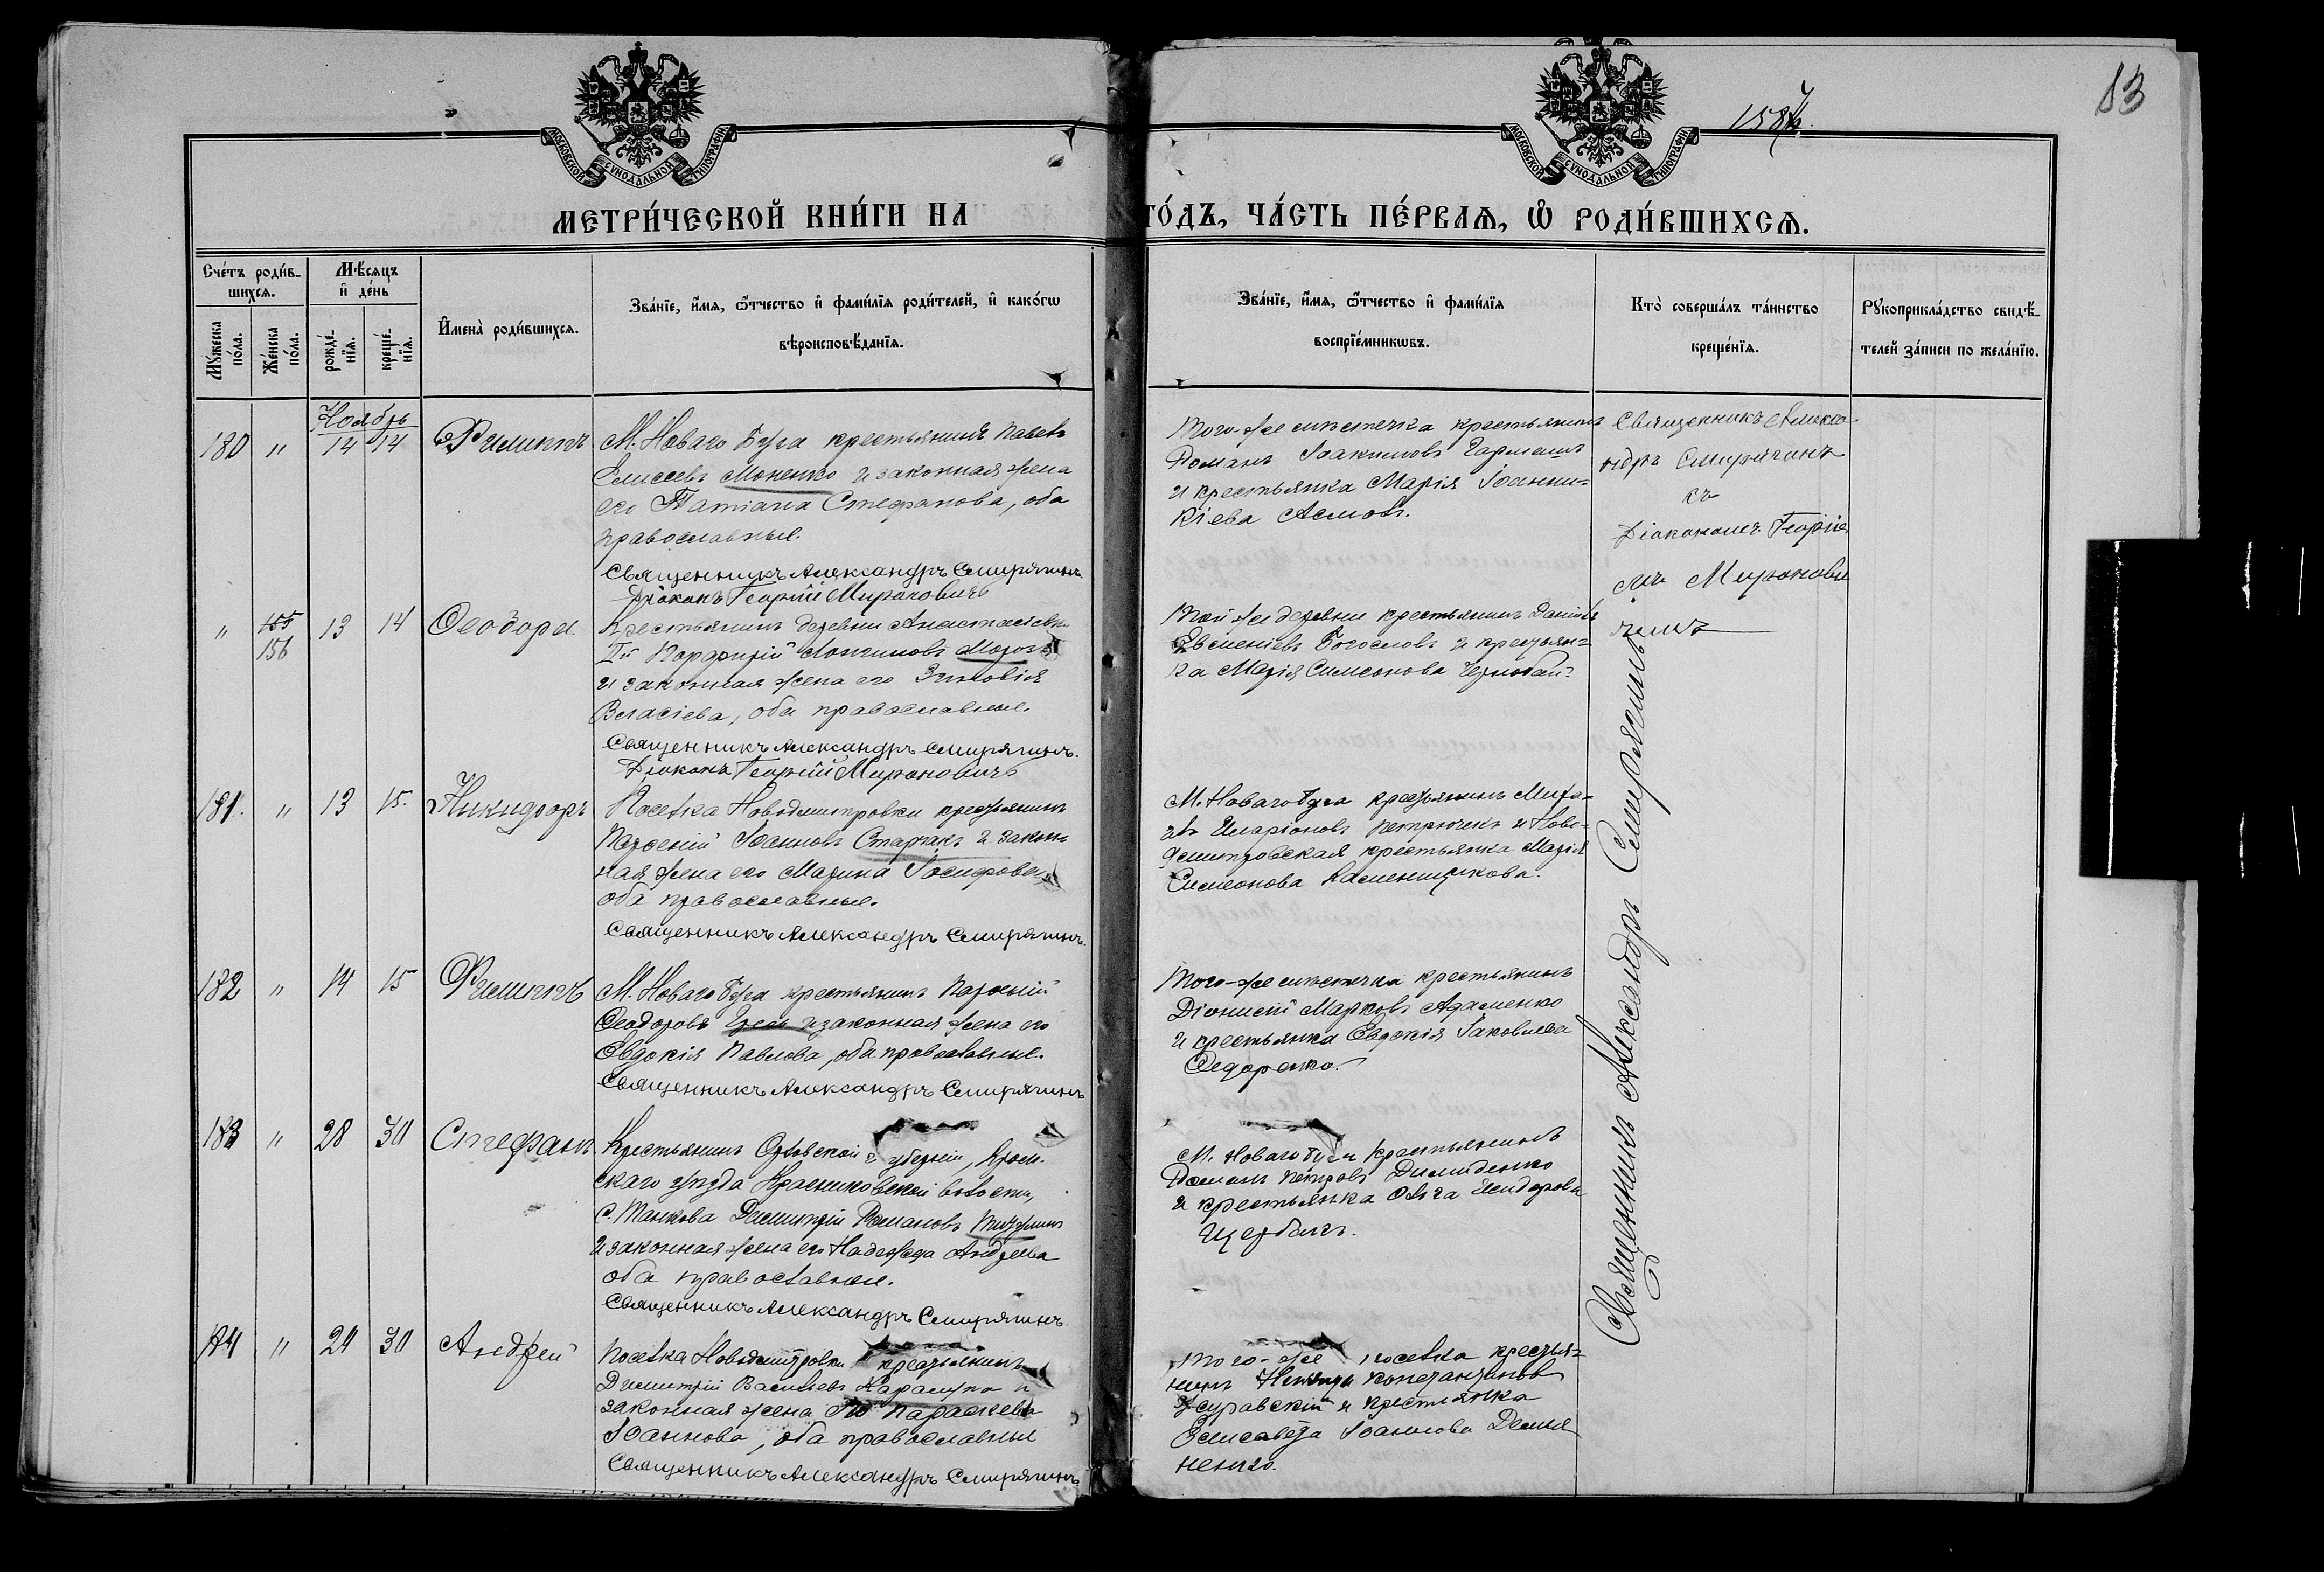 83
1584
МОСКОВСКОЙ СУНОДАЛЬНОЙ ТИПОГРАФІИ
МОСКОВСКОЙ СУНОДАЛЬНОЙ ТИПОГРАФІИ
МЕТРИ́ЧЕСКОЙ КНИ́ГИ НА ГО́ДЪ, ЧА́СТЬ ПЕ́РВАѦ, Ѡ РОДИ́ВШИХСѦ.
Сче́тъ роди́в-
шихсѧ.
Мѣ́сѧцъ
и҆ де́нь
Мꙋ́жеска по́ла.
Же́нска по́ла.
рожде́-
нїѧ.
креще́-
нїѧ.
И҆мена̀ роди́вшихсѧ.
Зва́нїе, и҆́мѧ, ѻ҆́тчество и҆ фами́лїѧ роди́телей, и҆ како́гѡ
вѣроисповѣ́данїѧ.
Зва́нїе, и҆́мѧ, ѻ҆́тчество и҆ фами́лїѧ
воспрїе́мникѡвъ.
Кто̀ соверша́лъ та́инство
креще́нїѧ.
Рꙋкоприкла́дство свидѣ́-
телей за́писи по жела́нїю.
Ноябрь
180 " 14 14 Филиппъ
М. Новаго Буга крестьянинъ Павелъ
Елисеевъ Моненко и законная жена
его Татіана Стефанова, оба
православные.
Священникъ Александръ Смирягинъ.
Діаконъ Георгій Мироновичъ
Того-же мѣстечка крестьянинъ
Романъ Іоакимовъ
и крестьянка Марія Іоанни-
кіева
Священникъ Алекса-
ндръ Смирягинъ
съ
Діакономъ Георгіе-
мъ Миронови
чемъ
" 155 156 13 14 Ѳеодора
Крестьянинъ деревни Анастасіевки
Iй Порфирій Логиновъ Мороз
и законная жена его Зиновія
Власіева, оба православные.
Священникъ Александръ Смирягинъ.
Діаконъ Георгій Мироновичъ
Той же деревни крестьянинъ Даніилъ
Евменіевъ Богословъ и крестьян-
ка Марія Симеонова Чернобай.
181. " 13 15. Никифоръ
Поселка Новодмитровки крестьянинъ
Парѳеній Іоанновъ Старчакъ и закон-
ная жена его Марина Іосифова
оба православные.
Священникъ Александръ Смирягинъ.
М. Новаго Буга крестьянинъ Миха-
илъ Иларіоновъ Петрючекъ и Ново-
дмитровская крестьянка Марія
Симеонова Каменщикова.
182 " 14 15 Филиппъ
М. Новаго Буга крестьянинъ Парѳеній
Ѳеодоровъ и законная жена его
Евдокія Павлова, оба православные.
Священникъ Александръ Смирягинъ
Того-же мѣстечка крестьянинъ
Діонисій Марковъ Адаменко
и крестьянка Евдокія Іаковлева
Ѳедоренко.
183 " 28 30 Стефанъ
Крестьянинъ Орловской губерніи, Кром-
скаго уѣзда волости,
с. Танкова Димитрій Романовъ
и законная жена его Надежда Андреева
оба православные.
Священникъ Александръ Смирягинъ.
М. Новаго Буга крестьянинъ
Романъ Петровъ Димиденко
и крестьянка Ольга Исидорова
Щербина.
184 " 24 30 Андрей
Поселка Новодмитровки крестьянинъ
Димитрій Васильевъ Карампа и
законная жена его Параскева
Іоаннова, оба православные
Священникъ Александръ Смирягинъ
Того-же поселка крестья-
нинъ Константиновъ
Журавскій и крестьянка
Елисавета Іоаннова Демья
ненко.
Священникъ Александръ Смирягинъ